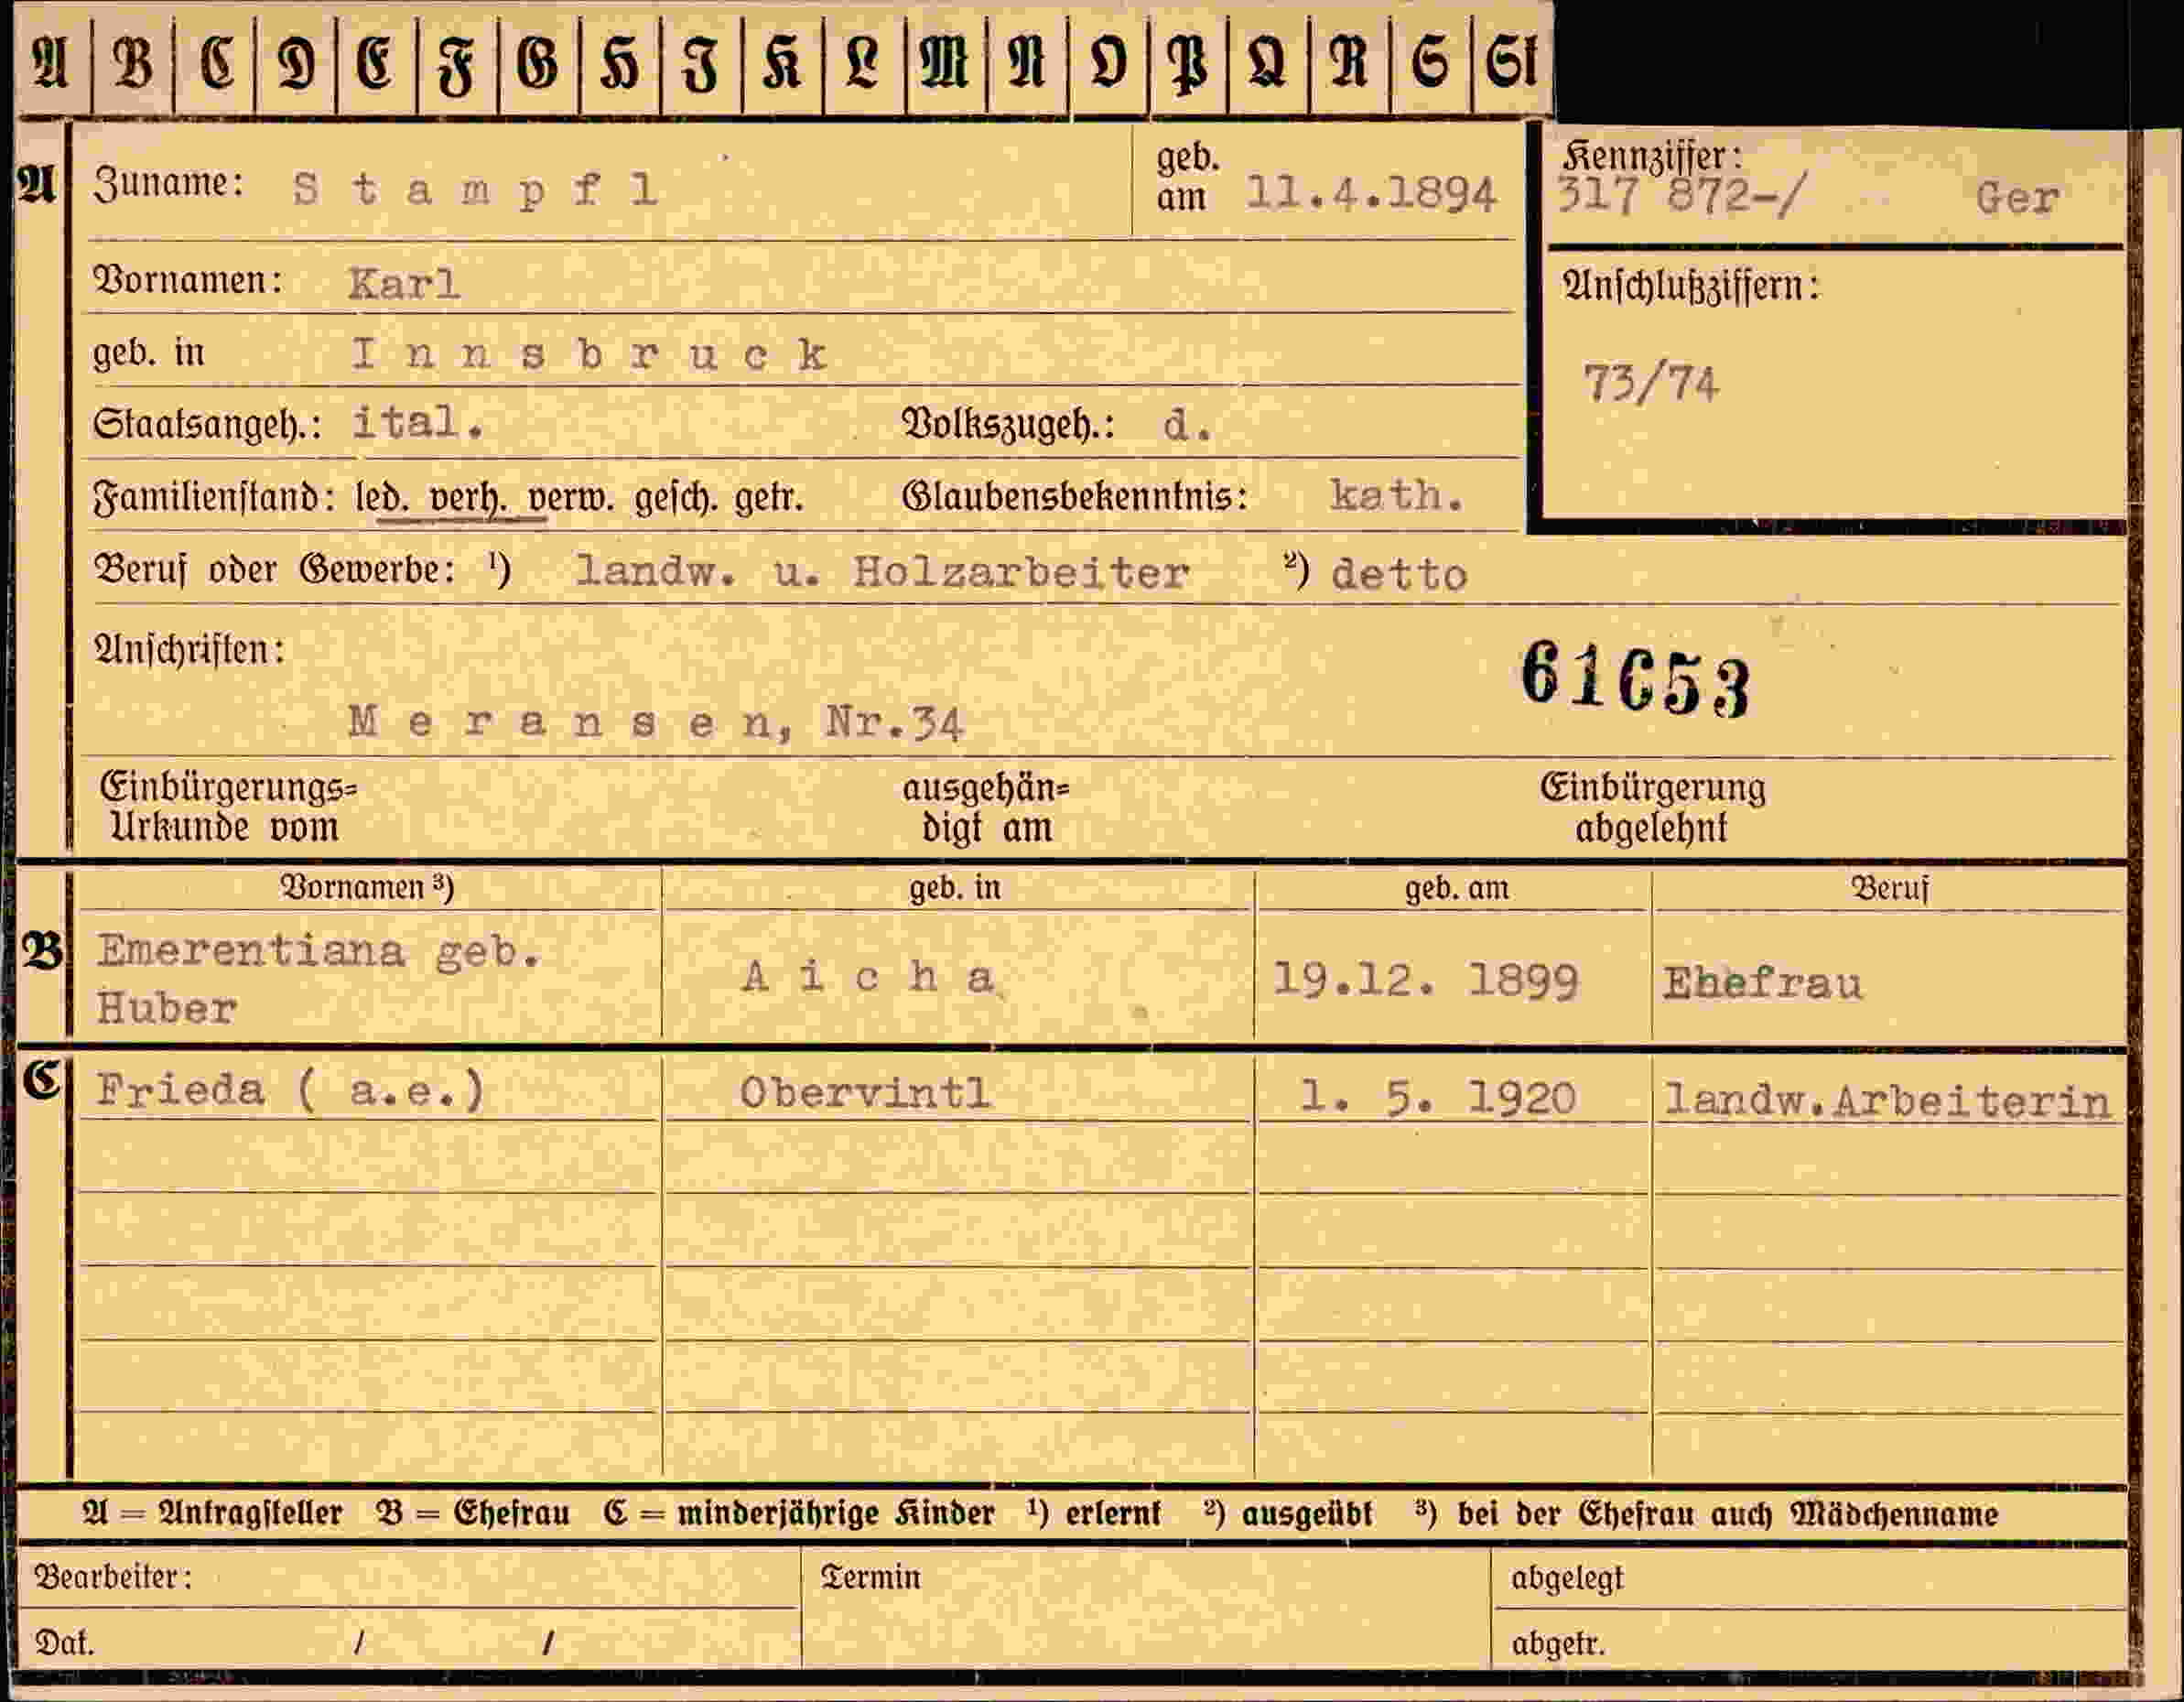 A B C D E F G H I K L M N O P Q R S St
A Zuname: Stampfl geb. am 11.4.1894 Kennziffer: 317 872-/ Ger
Vornamen: Karl Anschlußziffern:
geb. in Innsbruck 73/74
Staatsangeh.: ital. Volkszugeh.: d.
Familienstand: led. verh. verw. gesch. getr. Glaubensbekenntnis: kath.
Beruf oder Gewerbe: ¹) landw. u. Holzarbeiter ²) detto
Anschriften: 61653
Meransen, Nr.34
Einbürgerungs= ausgehän= Einbürgerung
Urkunde vom digt am abgelehnt
Vornamen ³) geb. in geb. am Beruf
B Emerentiana geb. Aicha 19.12. 1899 Ehefrau
Huber
C Frieda ( a.e.) Obervintl 1. 5. 1920 landw.Arbeiterin
A = Antragsteller B = Ehefrau C = minderjährige Kinder ¹) erlernt ²) ausgeübt ³) bei der Ehefrau auch Mädchenname
Bearbeiter: Termin abgelegt
Dat. / / abgetr.